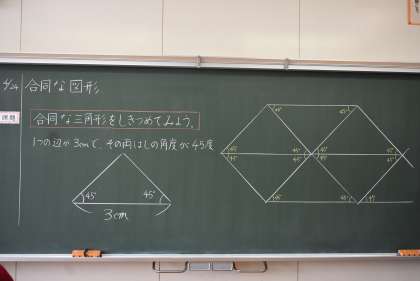 6/24 合同な図形
課題
合同な三角形をしきつめてみよう。
1つの辺が3cmで、その両はしの角度が45度
45° 45°
3cm
45° 45°
45° 45° 45° 45°
45° 45° 45° 45°
45° 45° 45°